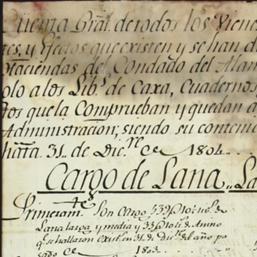 Cuenta Gral. de todos los Viene
res, y efectos que existen y se han d
Haciendas del Condado del Alam
olo a los Lib.s de Caxa, Cuadernos
tos que la Comprueban y quedan a
Administracion; siendo su conteni
hasta 31,, de Dic.re de 1804
Cargo de Lana,, La
Primeram.te Son Cargo
Lana larga y media y de Annno
q.e se hallaron exist. en 31 de Dic.re del año pa
sado de 1803